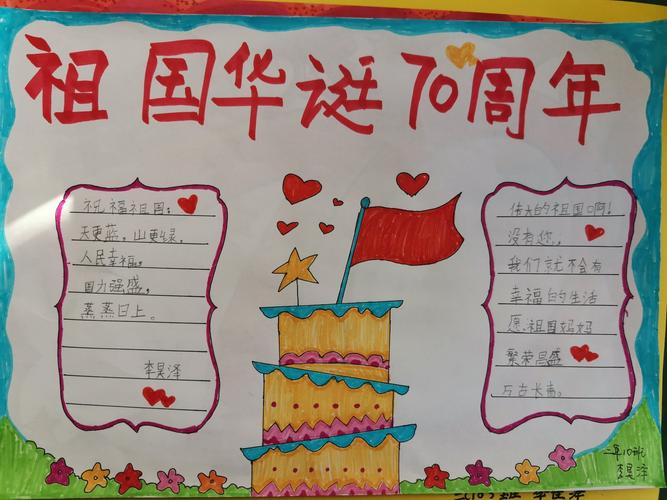 祖国华诞70周年
祝福祖国:
天更蓝,山更绿,
人民幸福,
国力强盛,
蒸蒸日上。
李昊泽
伟大的祖国啊!
没有你,
我们就不会有
幸福的生活
愿祖国妈妈
繁荣昌盛
万古长青。
二年10班
李昊泽